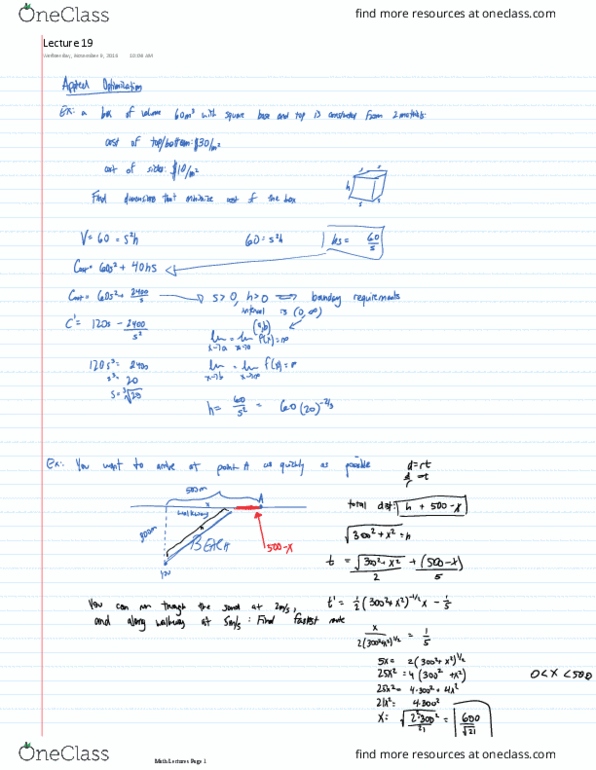 OneClass
find more resources at oneclass.com
Lecture 19
Wednesday, November 9, 2016 10:06 AM
Applied Optimization
Ex: a box of volume 60m³ with square base and top is constructed from 2 materials.
cost of top/bottom: $30/m²
cost of sides: $10/m²
Find dimensions that minimize cost of the box
h
s
V = 60 = s²h
60 = s²h
hs = 60/s
Cost = 60s² + 40hs
Cost = 60s² + 2400/s
s > 0, h > 0
boundary requirements
interval is (0, ∞)
(a, b)
C' = 120s - 2400/s²
lim s→a = lim f(x) = ∞
120s³ = 2400
s³ = 20
s = ³√20
lim x→b = lim x→∞ f(s) = ∞
h = 60/s² = 60(20)^-2/3
Ex: You want to arrive at point A as quickly as possible
d = rt
d/r = t
500m
A
x
walkway
300m
BEACH
You
500-x
total dist: h + 500 - x
√300² + x² = h
t = √300² + x² / 2 + (500 - x) / 5
You can run through the sand at 2m/s,
and along walkway at 5m/s: Find fastest route
t' = 1/2 (300² + x²)^-1/2 x - 1/5
x / 2(300² + x²)^1/2 = 1/5
5x = 2(300² + x²)^1/2
25x² = 4(300² + x²)
25x² = 4·300² + 4x²
21x² = 4·300²
x = √2²·300² / 21 = 600/√21
0 < x < 500
OneClass
Math Lectures Page 1
find more resources at oneclass.com